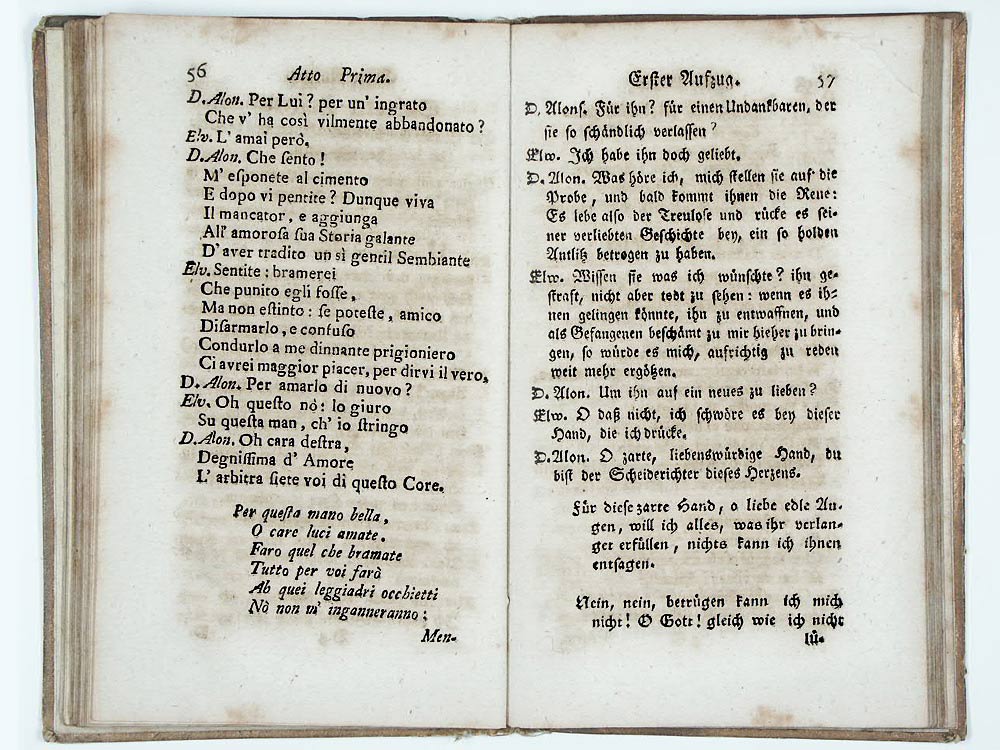 56 Atto Prima.
D. Alon. Per Lui? per un' ingrato
Che v' ha così vilmente abbandonato?
Elv. L' amai però.
D. Alon. Che ſento!
M' eſponete al cimento
E dopo vi pentite? Dunque viva
Il mancator, e aggiunga
All' amoroſa ſua Storia galante
D' aver tradito un sì gentil Sembiante
Elv. Sentite: bramerei
Che punito egli foſſe,
Ma non eſtinto: ſe poteſte, amico
Diſarmarlo, e confuſo
Condurlo a me dinnante prigioniero
Ci avrei maggior piacer, per dirvi il vero,
D. Alon. Per amarlo di nuovo?
Elv. Oh queſto nò: lo giuro
Su queſta man, ch' io ſtringo
D. Alon. Oh cara deſtra,
Degniſſima d' Amore
L' arbitra ſiete voi di queſto Core.
Per queſta mano bella,
O care luci amate.
Faro quel che bramate
Tutto per voi farò
Ah quei leggiadri occhietti
Nò non m' inganneranno:
Men-
Erſter Aufzug. 57
D. Alonſ. Für ihn? für einen Undankbaren, der
ſie ſo ſchändlich verlaſſen?
Elw. Ich habe ihn doch geliebt.
D. Alon. Was höre ich, mich ſtellen ſie auf die
Probe, und bald kommt ihnen die Reue:
Es lebe alſo der Treuloſe und rücke es ſei-
ner verliebten Geſchichte bey, ein ſo holden
Antlitz betrogen zu haben.
Elw. Wiſſen ſie was ich wünſchte? ihn ge-
ſtraft, nicht aber todt zu ſehen: wenn es ih-
nen gelingen könnte, ihn zu entwaffnen, und
als Gefangenen beſchämt zu mir hieher zu brin-
gen, ſo würde es mich, aufrichtig zu reden
weit mehr ergötzen.
D. Alon. Um ihn auf ein neues zu lieben?
Elw. O daß nicht, ich ſchwöre es bey dieſer
Hand, die ich drücke.
D. Alon. O zarte, liebenswürdige Hand, du
biſt der Scheiderichter dieſes Herzens.
Für dieſe zarte Hand, o liebe edle Au-
gen, will ich alles, was ihr verlan-
get erfüllen, nichts kann ich ihnen
entſagen.
Nein, nein, betrügen kann ich mich
nicht! O Gott! gleich wie ich nicht
lü-